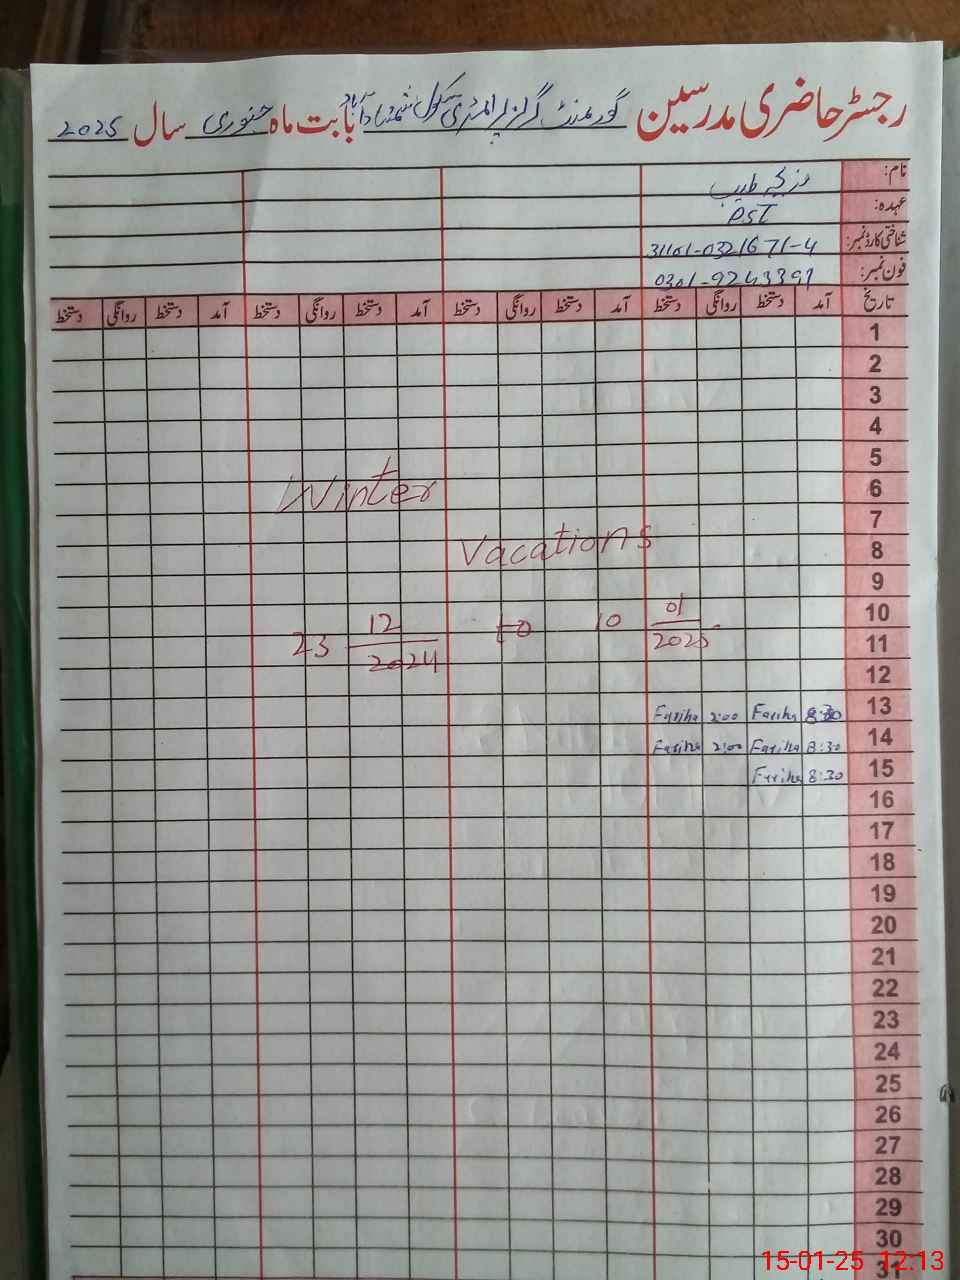 رجسٹر حاضری مدرسین گورنمنٹ گرلز پرائمری سکول شمشاد آباد بابت ماہ جنوری سال 2025
نام:
عہدہ: PST
شناختی کارڈ نمبر: 31101-0321671-4
فون نمبر: 0301-9243391
تاریخ آمد دستخط روانگی دستخط آمد دستخط روانگی دستخط آمد دستخط روانگی دستخط آمد دستخط روانگی دستخط
1
2
3
4
5
6
Winter
7
8
Vacations
9
10
11
23 12/2024 to 10 01/2025
12
13 8:30 Fariha 2:00 Fariha
14 8:30 Fariha 2:00 Fariha
15 8:30 Fariha
16
17
18
19
20
21
22
23
24
25
26
27
28
29
30
31
15-01-25 12:13